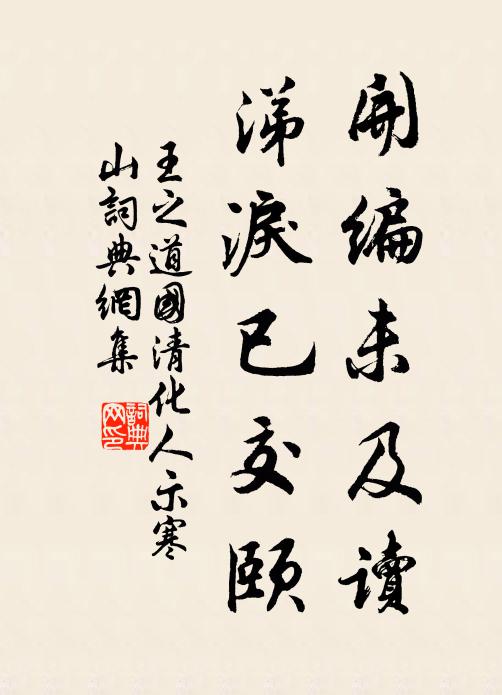 開編未及讀
涕淚已交頤
王之道國清化人示寒
山詞典網集
詞典
网印